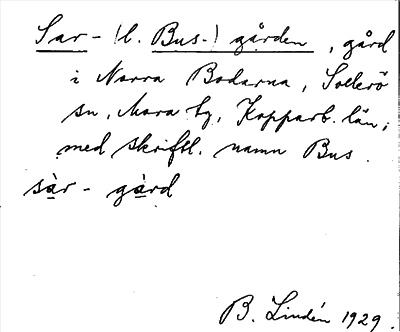 Sar- (l. Bus-) gården, gård
i Norra Bodarna, Sollerö
sn, Mora tg, Kopparb. län;
med skriftl. namn Bus.
sàr - gàrd
B. Lindén 1929.